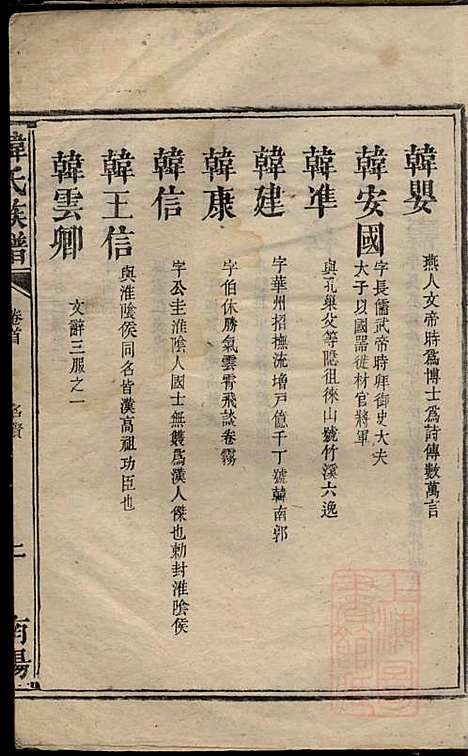 韓嬰
燕人文帝時爲博士爲詩傳數萬言
韓安國
字長儒武帝時拜御史大夫
大子以國器徙材官將軍
韓准
與孔巢父等隱徂徠山號竹溪六逸
韓建
字華州招撫流增戸億千丁號韓南郭
韓康
字伯休勝氣雲霄飛談卷霧
韓信
字公圭淮陰人國士無雙爲漢人傑也勅封淮陰侯
韓王信
與淮陰侯同名皆漢高祖功臣也
韓雲卿
文辭三服之一
韓氏族譜
卷首
名賢
二
南陽